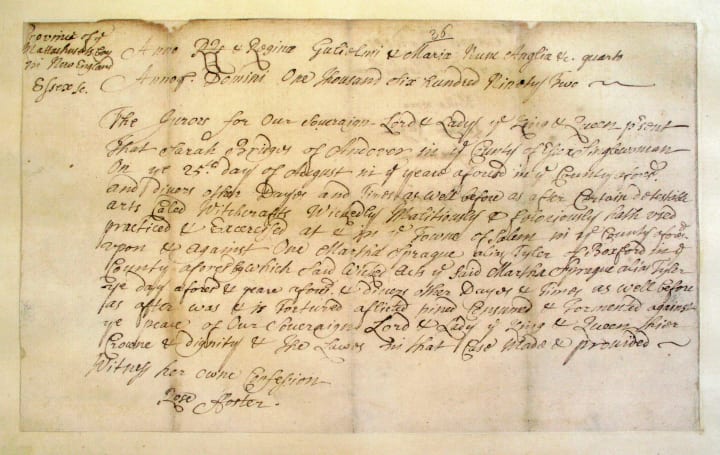 36
Province of ye
Massachusetts Bay
in New England
Essex sc.
Anno RRs & Reginæ Gulielmi & Mariæ Nunc Angliæ &c. quarto
Annoq. Domini One Thousand Six hundred Ninety Two
The Jurors for Our Soveraign Lord & Lady ye King & Queen prsent
That Sarah Bridges of Andover in ye County of Essex Singlewoman
On ye 25th day of August in ye yeare aforesd in ye County aforesd
and divers other Dayes and times as well before as after Certain detestable
arts Caled Witchcrafts Wickedly Malitiously & feloniously hath used
practiced & Exercised at & in ye Towne of Salem in ye County aforesd
upon & against One Martha Sprague alias Tyler of Boxford in ye
County aforesd by which said Wicked Acts ye said Martha Sprague alias Tyler
ye day aforesd & yeare aforesd & divers other Dayes & times as well before
as after was & is Tortured aflicted pined Consumed & Tormented against
ye peace of Our Soveraign Lord & Lady ye King & Queen thier
Crowne & dignity & the Lawes in that Case Made & provided
Witness her owne Confession
Rose Foster.